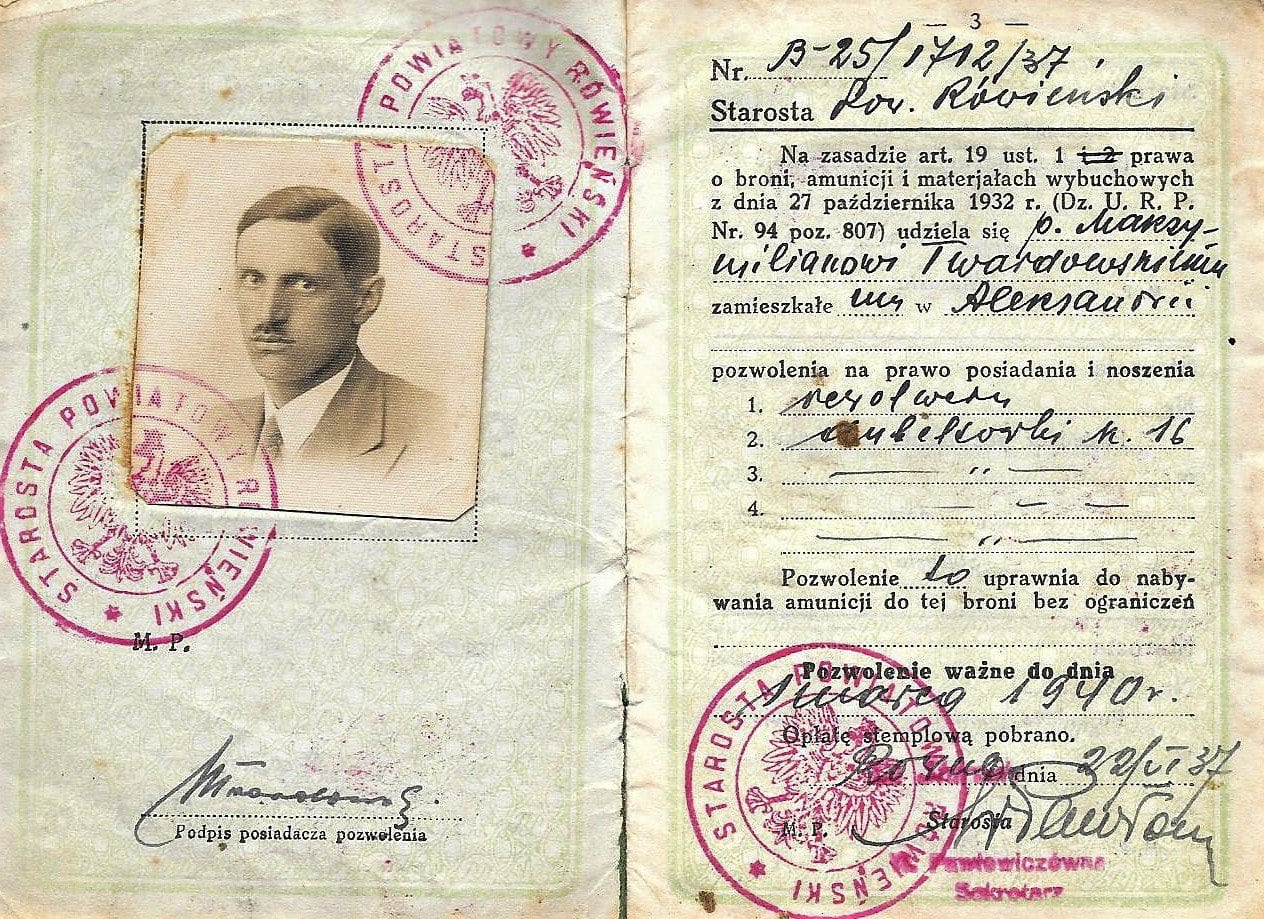 STAROSTA POWIATOWY RÓWIEŃSKI
STAROSTA POWIATOWY RÓWIEŃSKI
M. P.
Podpis posiadacza pozwolenia
— 3 —
Nr. B-25/1712/37
Starosta Pow. Rówieński
Na zasadzie art. 19 ust. 1 i 2 prawa
o broni, amunicji i materjałach wybuchowych
z dnia 27 października 1932 r. (Dz. U. R. P.
Nr. 94 poz. 807) udziela się p. Maksy-
miljanowi Twardowskiemu
zamieszkałemu w Aleksandrii
pozwolenia na prawo posiadania i noszenia
1. rewolweru
2. dubeltówki k. 16
3. — " —
4. — —
— " —
Pozwolenie to uprawnia do naby-
wania amunicji do tej broni bez ograniczeń
Pozwolenie ważne do dnia
marca 1940 r.
Opłatę stemplową pobrano.
Równe dnia 22/VI 37
M. P. Starosta
STAROSTA POWIATOWY RÓWIEŃSKI
Pawłowiczówna
Sekretarz